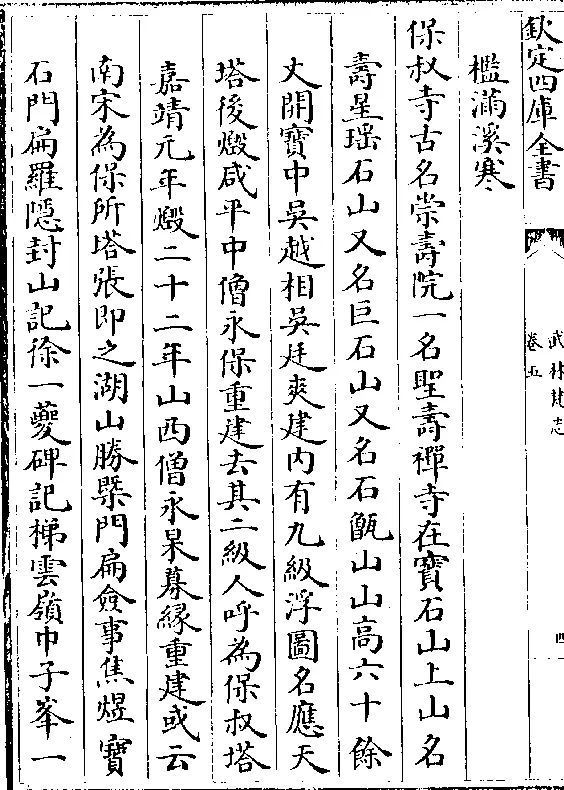 欽定四庫全書
武林梵志
卷五
四
檻滿溪寒
保叔寺古名崇壽院一名聖壽禪寺在寶石山上山名
壽星瑶石山又名巨石山又名石甑山山高六十餘
丈開寶中吳越相吳廷爽建内有九級浮圖名應天
塔後燬咸平中僧永保重建去其二級人呼為保叔塔
嘉靖元年燬二十二年山西僧永杲募緣重建或云
南宋為保所塔張即之湖山勝槩門扁僉事焦煜寶
石門扁羅隠封山記徐一夔碑記梯雲嶺巾子峯一